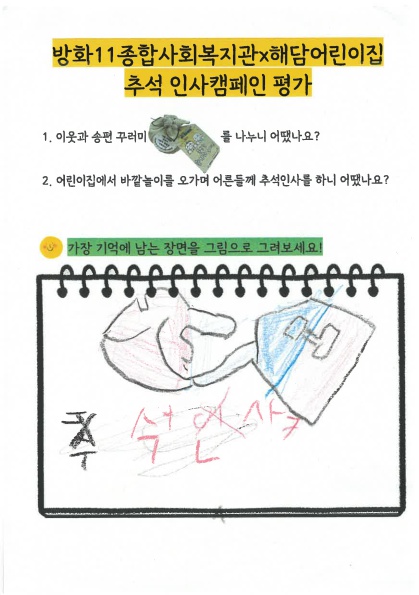 방화11종합사회복지관x해담어린이집
추석 인사캠페인 평가
1. 이웃과 송편 꾸러미 를 나누니 어땠나요?
2. 어린이집에서 바깥놀이를 오가며 어른들께 추석인사를 하니 어땠나요?
가장 기억에 남는 장면을 그림으로 그려보세요!
추석인사